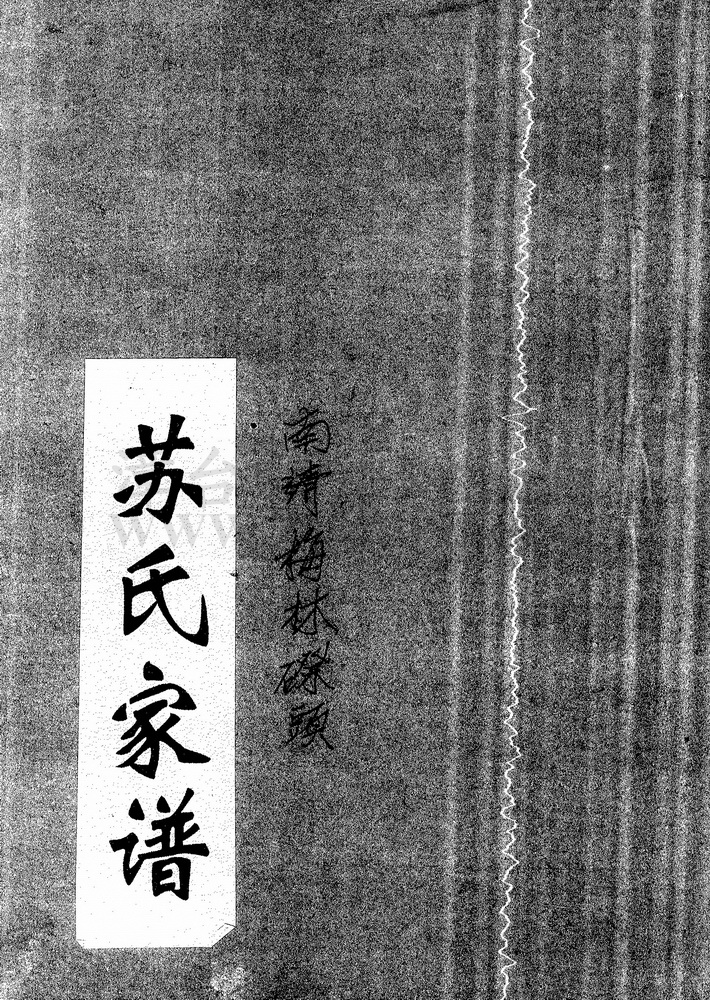 南靖梅林磜頭
苏氏家谱